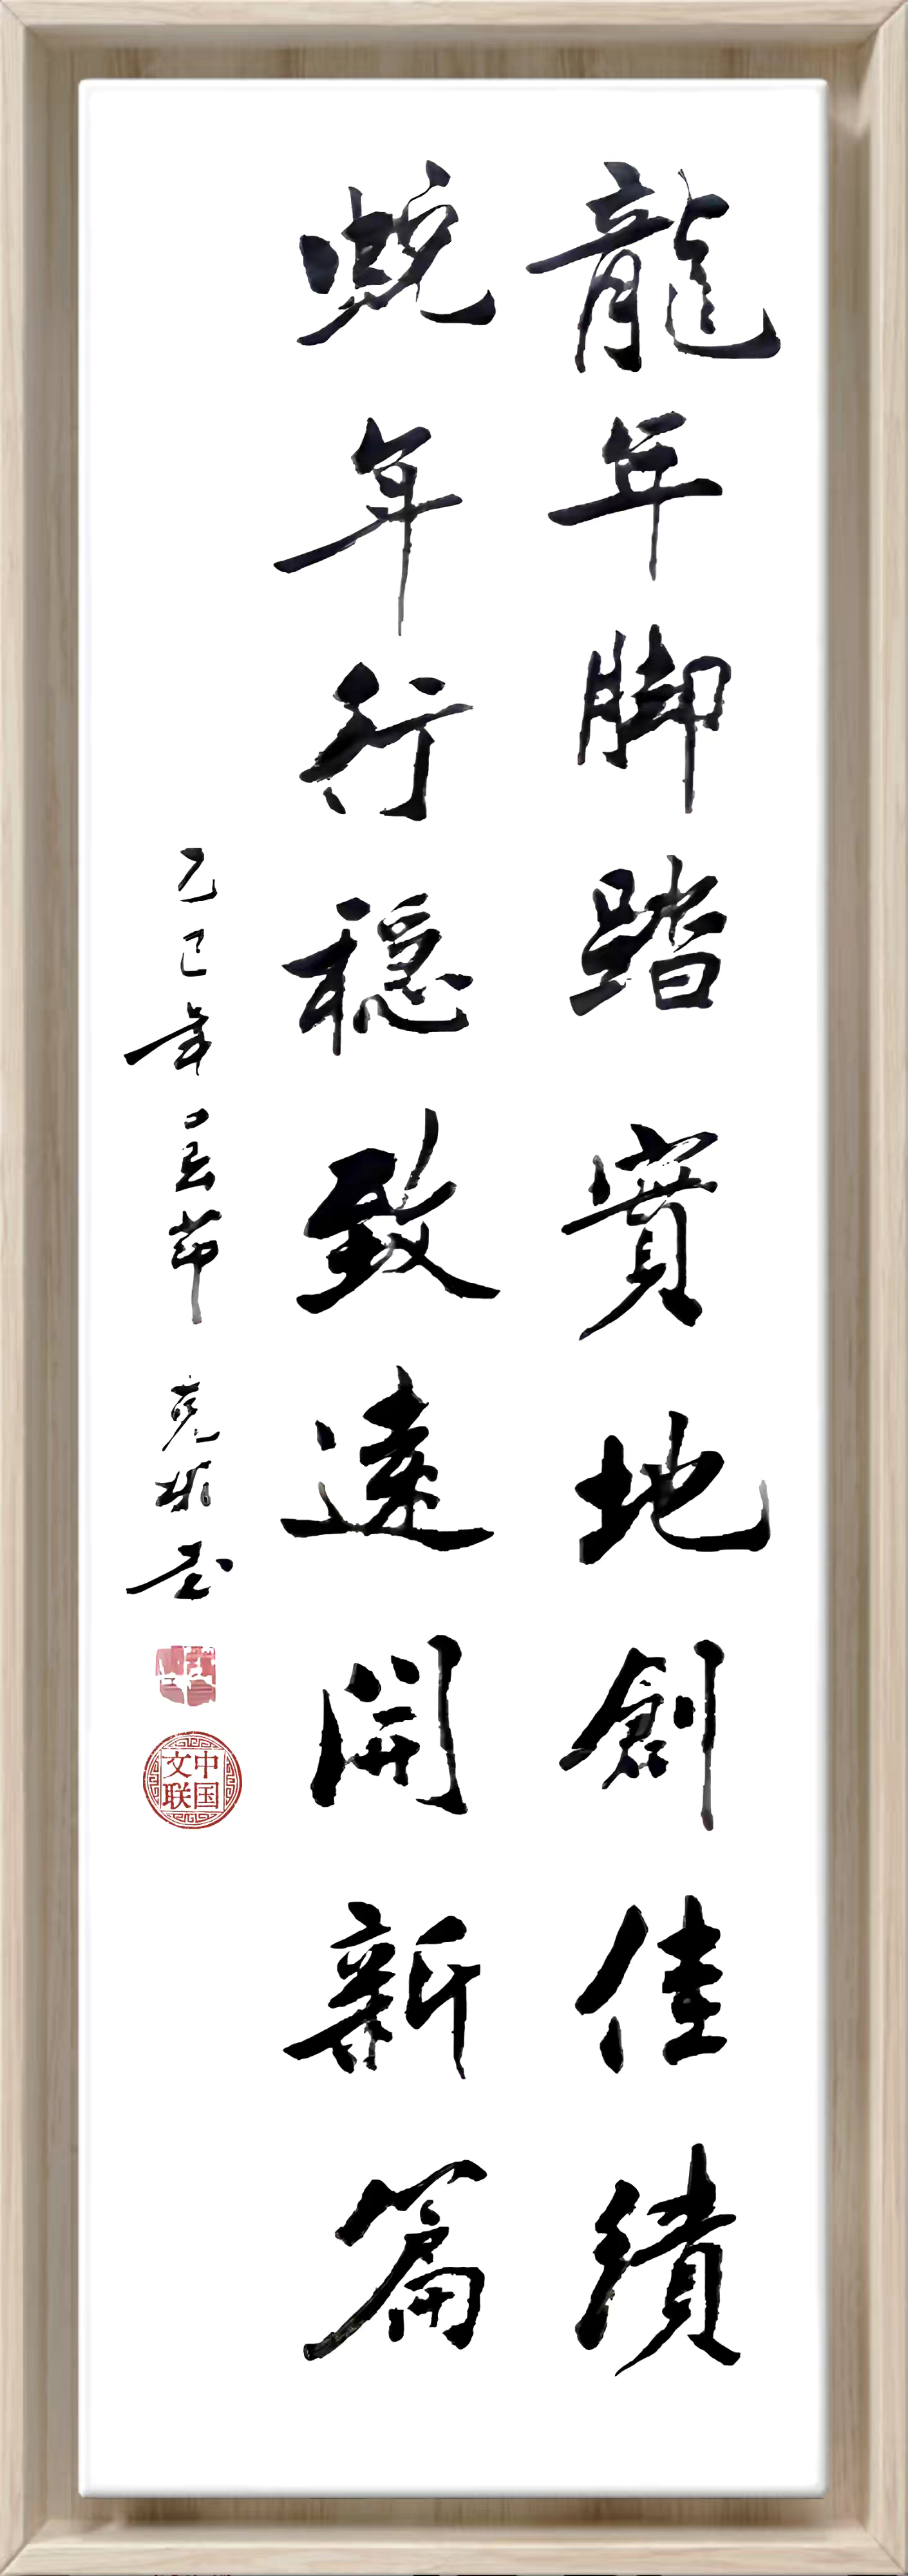 龍年脚踏實地創佳績
蛇年行穩致遠開新篇
乙巳年春節
中国文联